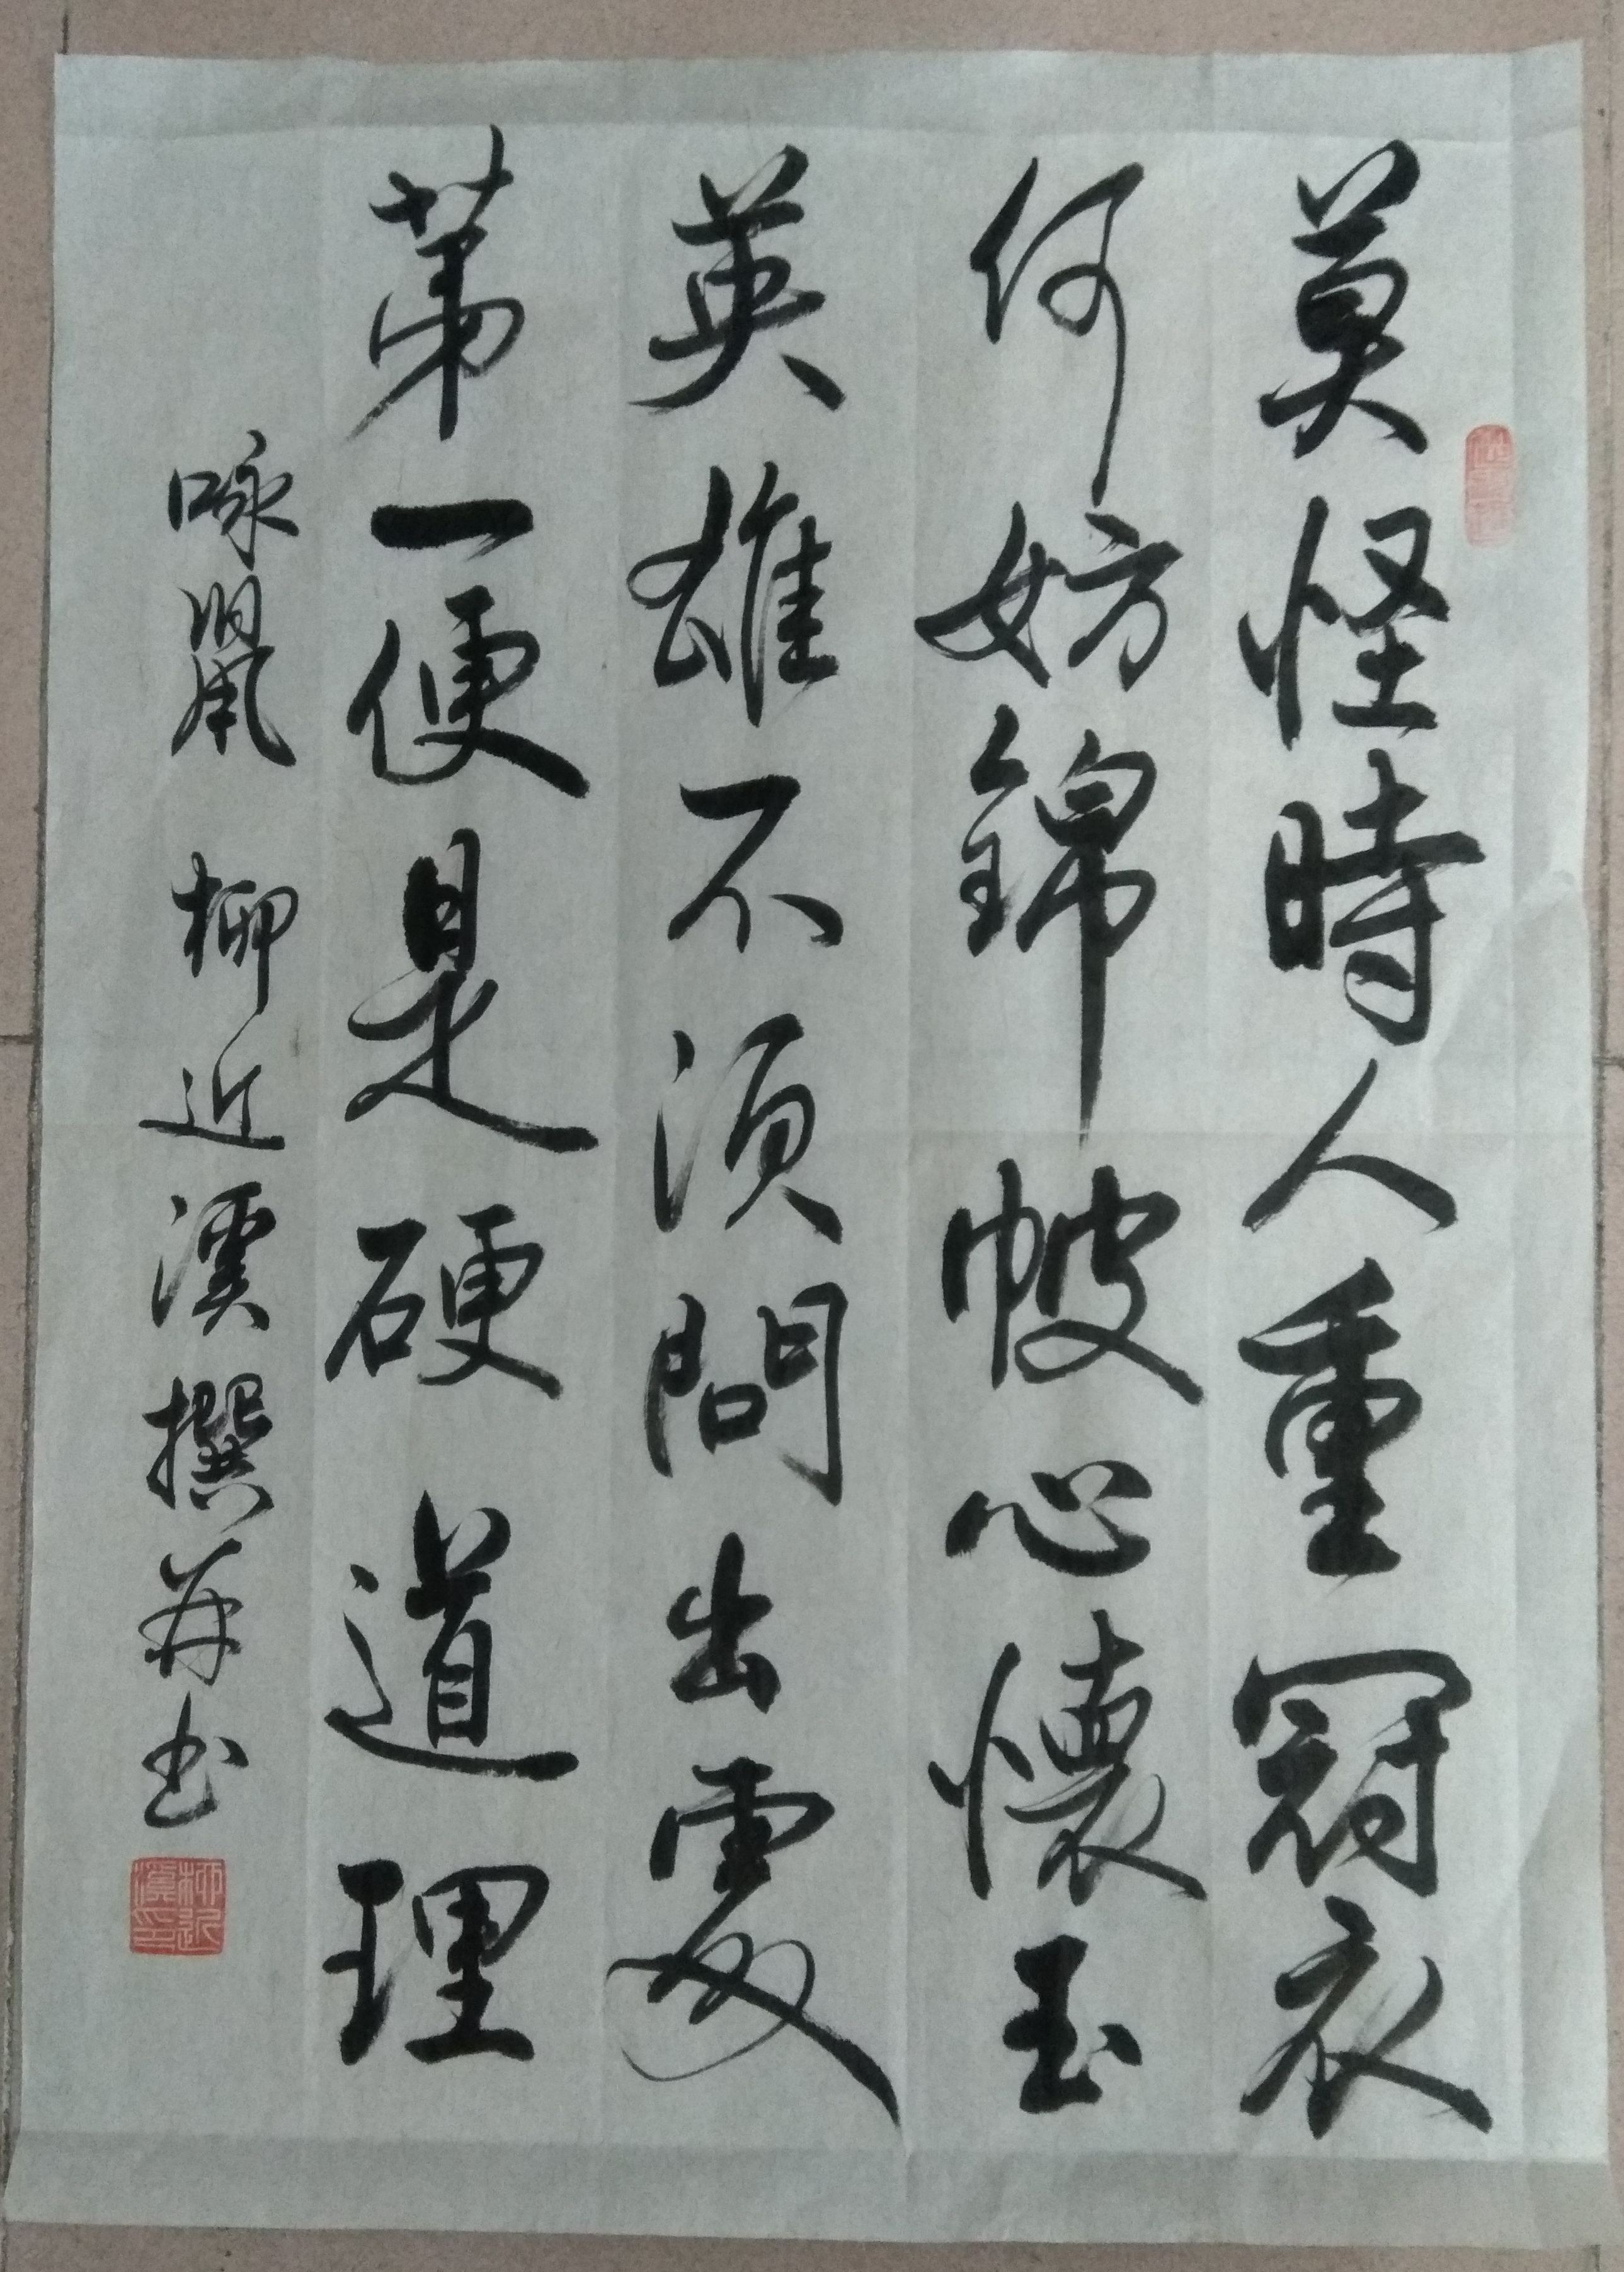 莫怪時人重冠衣
何妨錦帔心懷玉
英雄不須問出處
第一便是硬道理
咏鳳 柳近溪撰并书
柳近溪印